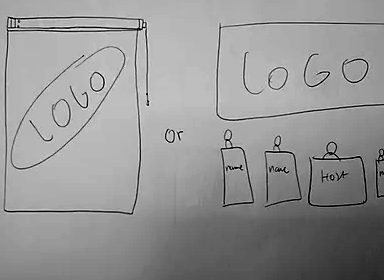 LOGO
or
LOGO
name
name
HOST